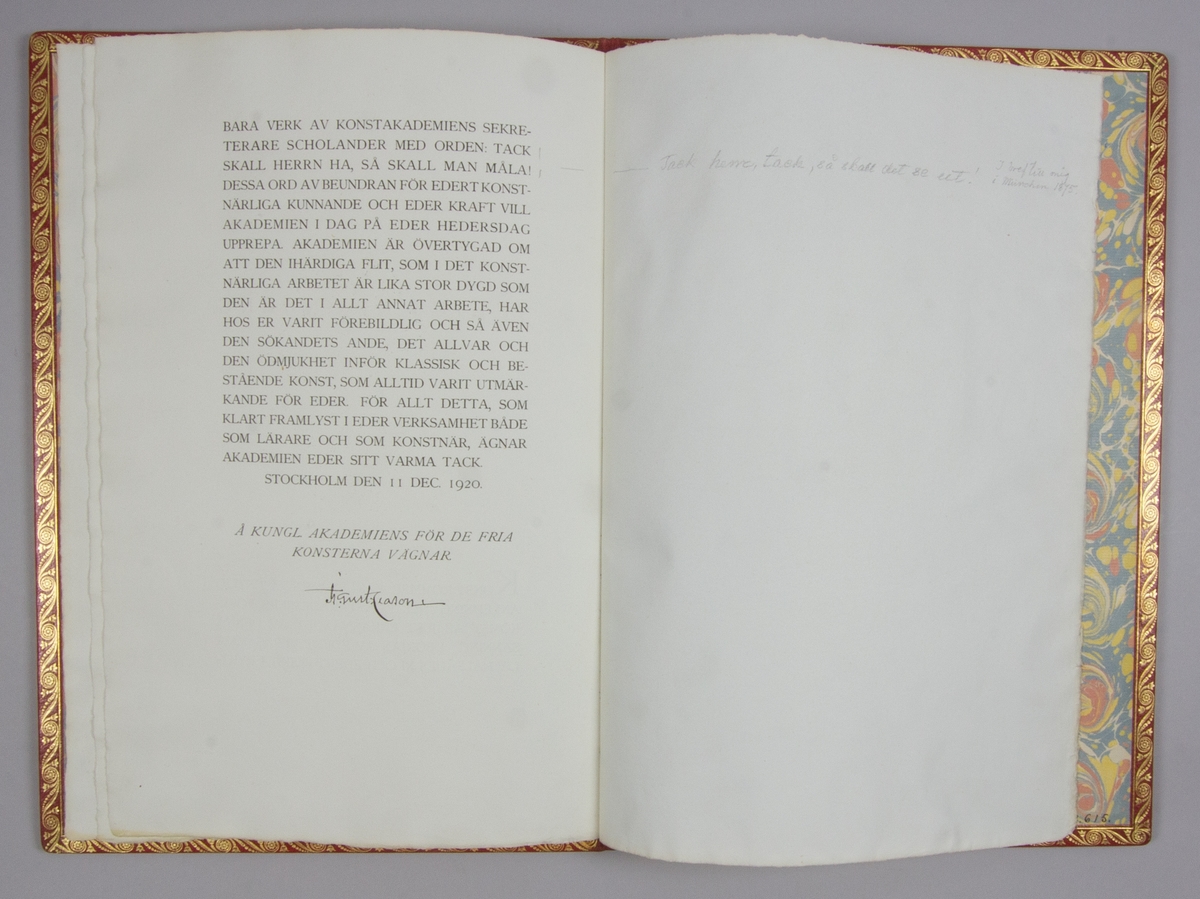 BARA VERK AV KONSTAKADEMIENS SEKRE-
TERARE SCHOLANDER MED ORDEN: TACK
SKALL HERRN HA, SÅ SKALL MAN MÅLA!
DESSA ORD AV BEUNDRAN FÖR EDERT KONST-
NÄRLIGA KUNNANDE OCH EDER KRAFT VILL
AKADEMIEN I DAG PÅ EDER HEDERSDAG
UPPREPA. AKADEMIEN ÄR ÖVERTYGAD OM
ATT DEN IHÄRDIGA FLIT, SOM I DET KONST-
NÄRLIGA ARBETET ÄR LIKA STOR DYGD SOM
DEN ÄR DET I ALLT ANNAT ARBETE, HAR
HOS ER VARIT FÖREBILDLIG OCH SÅ ÄVEN
DEN SÖKANDETS ANDE, DET ALLVAR OCH
DEN ÖDMJUKHET INFÖR KLASSISK OCH BE-
STÅENDE KONST, SOM ALLTID VARIT UTMÄR-
KANDE FÖR EDER. FÖR ALLT DETTA, SOM
KLART FRAMLYST I EDER VERKSAMHET BÅDE
SOM LÄRARE OCH SOM KONSTNÄR, ÄGNAR
AKADEMIEN EDER SITT VARMA TACK.
STOCKHOLM DEN 11 DEC. 1920.
Å KUNGL. AKADEMIENS FÖR DE FRIA
KONSTERNA VÄGNAR.
Tack herre, tack, så skall det se ut!
mig
i München 1875
615.